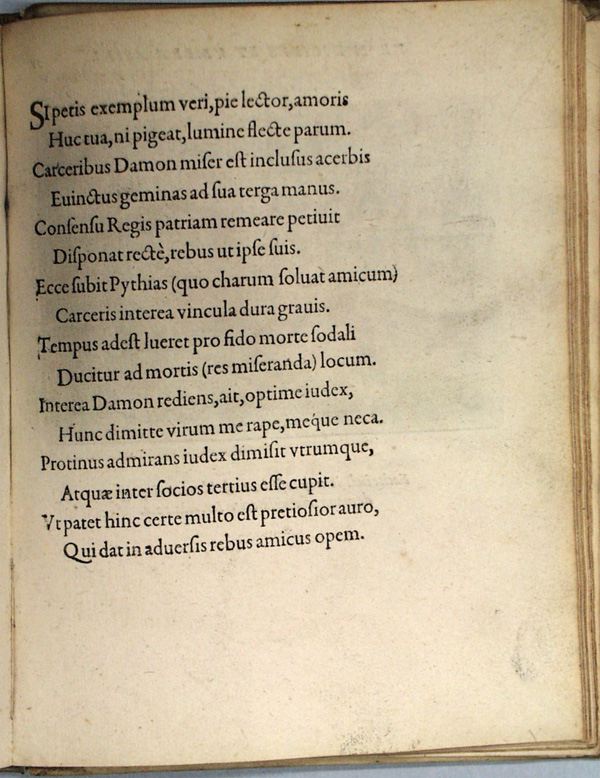 SI petis exemplum veri, pie lector, amoris
Huc tua, ni pigeat, lumine flecte parum.
Carceribus Damon miſer eſt incluſus acerbis
Euinctus geminas ad ſua terga manus.
Conſenſu Regis patriam remeare petiuit
Diſponat rectè, rebus ut ipſe ſuis.
Ecce ſubit Pythias (quo charum ſoluat amicum)
Carceris interea vincula dura grauis.
Tempus adeſt lueret pro fido morte ſodali
Ducitur ad mortis (res miſeranda) locum.
Interea Damon rediens, ait, optime iudex,
Hunc dimitte virum me rape, meque neca.
Protinus admirans iudex dimiſit vtrumque,
Atquæ inter ſocios tertius eſſe cupit.
Vt patet hinc certe multo eſt pretioſior auro,
Qui dat in aduerſis rebus amicus opem.